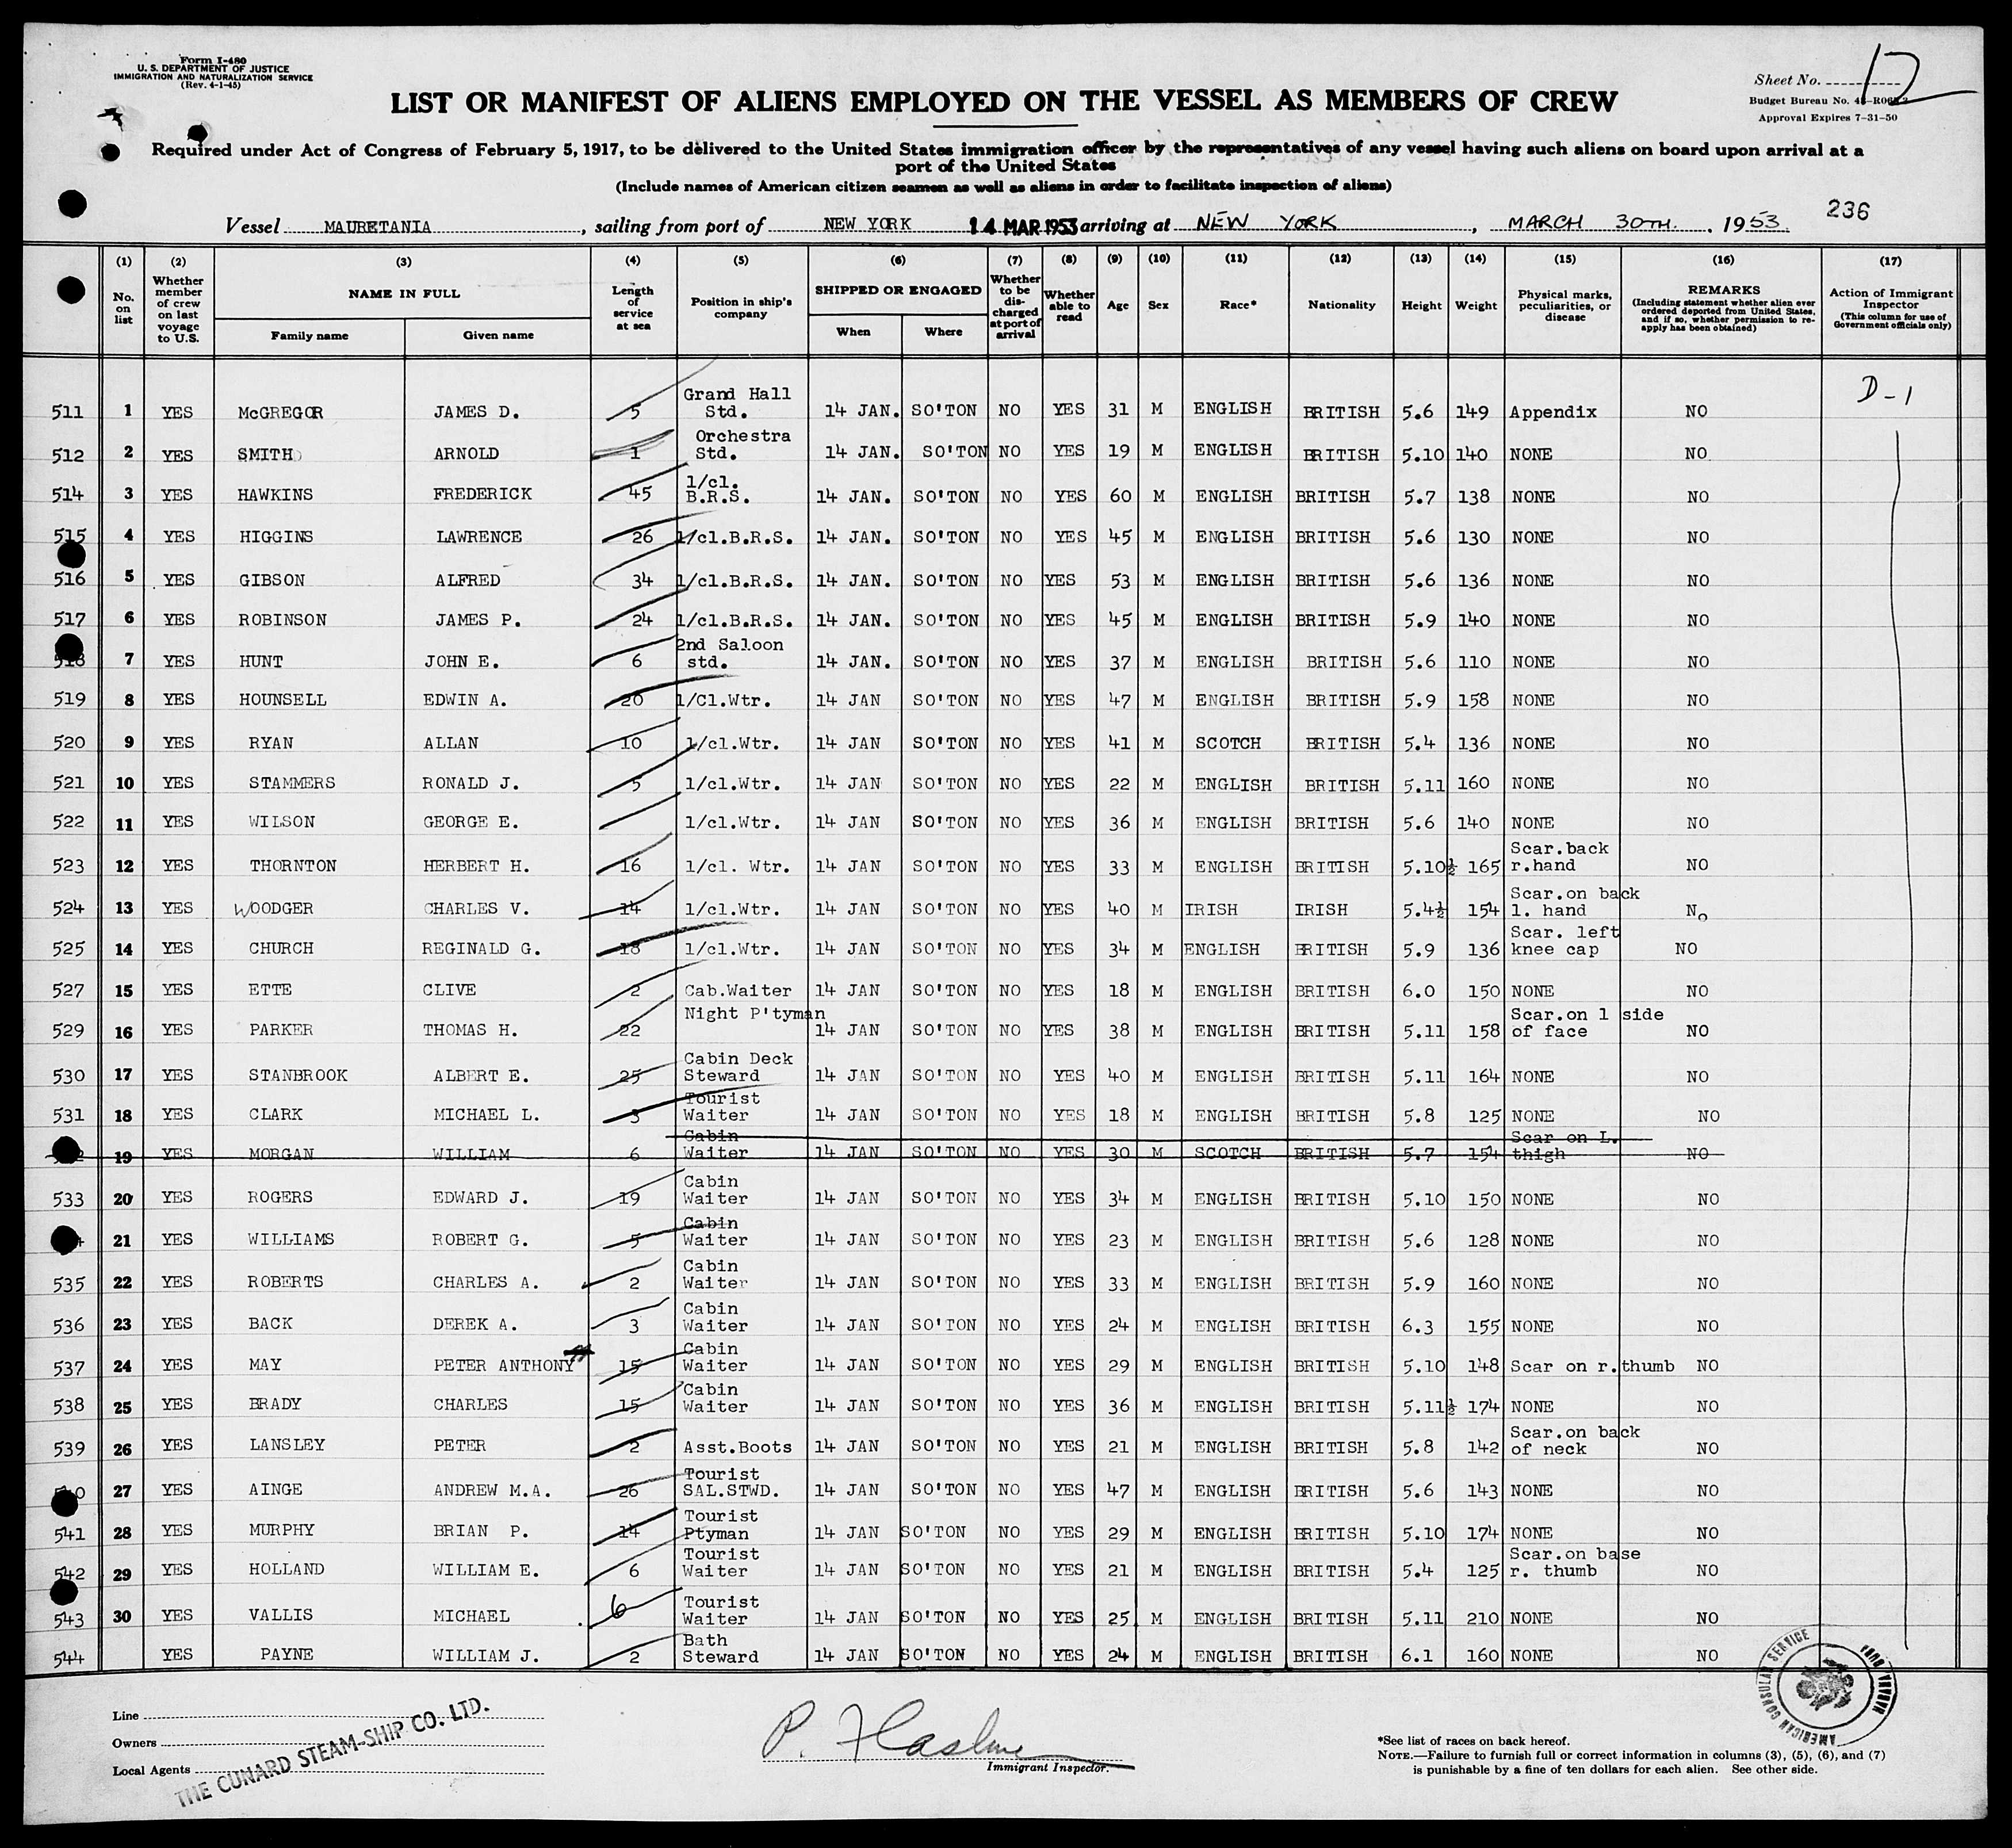 Form I-480
U. S. DEPARTMENT OF JUSTICE
IMMIGRATION AND NATURALIZATION SERVICE
(Rev. 4-1-45)
Sheet No. 12
Budget Bureau No.
Approval Expires 7-31-50
LIST OR MANIFEST OF ALIENS EMPLOYED ON THE VESSEL AS MEMBERS OF CREW
Required under Act of Congress of February 5, 1917, to be delivered to the United States immigration officer by the representatives of any vessel having such aliens on board upon arrival at a
port of the United States
(Include names of American citizen seamen as well as aliens in order to facilitate inspection of aliens)
236
Vessel MAURETANIA, sailing from port of NEW YORK 14 MAR 1953 arriving at NEW YORK, MARCH 30TH. 1953
(1) No. on list (2) Whether member of crew on last voyage to U.S. (3) NAME IN FULL Family name Given name (4) Length of service at sea (5) Position in ship's company (6) SHIPPED OR ENGAGED When Where (7) Whether to be discharged at port of arrival (8) Whether able to read (9) Age (10) Sex (11) Race* (12) Nationality (13) Height (14) Weight (15) Physical marks, peculiarities, or disease (16) REMARKS (Including statement whether alien ever ordered deported from United States, and if so, whether permission to reapply has been obtained) (17) Action of Immigrant Inspector (This column for use of Government officials only)
511 1 YES McGREGOR JAMES D. 5 Grand Hall Std. 14 JAN. SO'TON NO YES 31 M ENGLISH BRITISH 5.6 149 Appendix NO D-1
512 2 YES SMITH ARNOLD 1 Orchestra Std. 14 JAN. SO'TON NO YES 19 M ENGLISH BRITISH 5.10 140 NONE NO
514 3 YES HAWKINS FREDERICK 45 1/cl. B.R.S. 14 JAN. SO'TON NO YES 60 M ENGLISH BRITISH 5.7 138 NONE NO
515 4 YES HIGGINS LAWRENCE 26 1/cl.B.R.S. 14 JAN. SO'TON NO YES 45 M ENGLISH BRITISH 5.6 130 NONE NO
516 5 YES GIBSON ALFRED 34 1/cl.B.R.S. 14 JAN. SO'TON NO YES 53 M ENGLISH BRITISH 5.6 136 NONE NO
517 6 YES ROBINSON JAMES P. 24 1/cl.B.R.S. 14 JAN. SO'TON NO YES 45 M ENGLISH BRITISH 5.9 140 NONE NO
518 7 YES HUNT JOHN E. 6 2nd Saloon std. 14 JAN. SO'TON NO YES 37 M ENGLISH BRITISH 5.6 110 NONE NO
519 8 YES HOUNSELL EDWIN A. 20 1/Cl.Wtr. 14 JAN SO'TON NO YES 47 M ENGLISH BRITISH 5.9 158 NONE NO
520 9 YES RYAN ALLAN 10 1/cl.Wtr. 14 JAN SO'TON NO YES 41 M SCOTCH BRITISH 5.4 136 NONE NO
521 10 YES STAMMERS RONALD J. 5 1/cl.Wtr. 14 JAN SO'TON NO YES 22 M ENGLISH BRITISH 5.11 160 NONE NO
522 11 YES WILSON GEORGE E. 1/cl.Wtr. 14 JAN SO'TON NO YES 36 M ENGLISH BRITISH 5.6 140 NONE NO
523 12 YES THORNTON HERBERT H. 16 1/cl. Wtr. 14 JAN SO'TON NO YES 33 M ENGLISH BRITISH 5.10½ 165 Scar.back r.hand NO
524 13 YES WOODGER CHARLES V. 14 1/cl.Wtr. 14 JAN SO'TON NO YES 40 M IRISH IRISH 5.4½ 154 Scar.on back l. hand No
525 14 YES CHURCH REGINALD G. 18 1/cl.Wtr. 14 JAN SO'TON NO YES 34 M ENGLISH BRITISH 5.9 136 Scar. left knee cap NO
527 15 YES ETTE CLIVE 2 Cab.Waiter 14 JAN SO'TON NO YES 18 M ENGLISH BRITISH 6.0 150 NONE NO
529 16 YES PARKER THOMAS H. 22 Night P'tyman 14 JAN SO'TON NO YES 38 M ENGLISH BRITISH 5.11 158 Scar.on l side of face NO
530 17 YES STANBROOK ALBERT E. 25 Cabin Deck Steward 14 JAN SO'TON NO YES 40 M ENGLISH BRITISH 5.11 164 NONE NO
531 18 YES CLARK MICHAEL L. 3 Tourist Waiter 14 JAN SO'TON NO YES 18 M ENGLISH BRITISH 5.8 125 NONE NO
19 YES MORGAN WILLIAM 6 Cabin Waiter 14 JAN SO'TON NO YES 30 M SCOTCH BRITISH 5.7 154 Scar on L. thigh NO
533 20 YES ROGERS EDWARD J. 19 Cabin Waiter 14 JAN SO'TON NO YES 34 M ENGLISH BRITISH 5.10 150 NONE NO
21 YES WILLIAMS ROBERT G. 5 Cabin Waiter 14 JAN SO'TON NO YES 23 M ENGLISH BRITISH 5.6 128 NONE NO
535 22 YES ROBERTS CHARLES A. 2 Cabin Waiter 14 JAN SO'TON NO YES 33 M ENGLISH BRITISH 5.9 160 NONE NO
536 23 YES BACK DEREK A. 3 Cabin Waiter 14 JAN SO'TON NO YES 24 M ENGLISH BRITISH 6.3 155 NONE NO
537 24 YES MAY PETER ANTHONY 15 Cabin Waiter 14 JAN SO'TON NO YES 29 M ENGLISH BRITISH 5.10 148 Scar on r.thumb NO
538 25 YES BRADY CHARLES 15 Cabin Waiter 14 JAN SO'TON NO YES 36 M ENGLISH BRITISH 5.11½ 174 NONE NO
539 26 YES LANSLEY PETER 2 Asst.Boots 14 JAN SO'TON NO YES 21 M ENGLISH BRITISH 5.8 142 Scar.on back of neck NO
27 YES AINGE ANDREW M.A. 26 Tourist SAL.STWD. 14 JAN SO'TON NO YES 47 M ENGLISH BRITISH 5.6 143 NONE NO
541 28 YES MURPHY BRIAN P. 14 Tourist Ptyman 14 JAN SO'TON NO YES 29 M ENGLISH BRITISH 5.10 174 NONE NO
542 29 YES HOLLAND WILLIAM E. 6 Tourist Waiter 14 JAN SO'TON NO YES 21 M ENGLISH BRITISH 5.4 125 Scar.on base r. thumb NO
543 30 YES VALLIS MICHAEL 6 Tourist Waiter 14 JAN SO'TON NO YES 25 M ENGLISH BRITISH 5.11 210 NONE NO
544 YES PAYNE WILLIAM J. 2 Bath Steward 14 JAN SO'TON NO YES 24 M ENGLISH BRITISH 6.1 160 NONE NO
Line
Owners
Local Agents
THE CUNARD STEAM-SHIP CO. LTD.
Immigrant Inspector.
AMERICAN CONSULAR SERVICE
*See list of races on back hereof.
NOTE.—Failure to furnish full or correct information in columns (3), (5), (6), and (7)
is punishable by a fine of ten dollars for each alien. See other side.